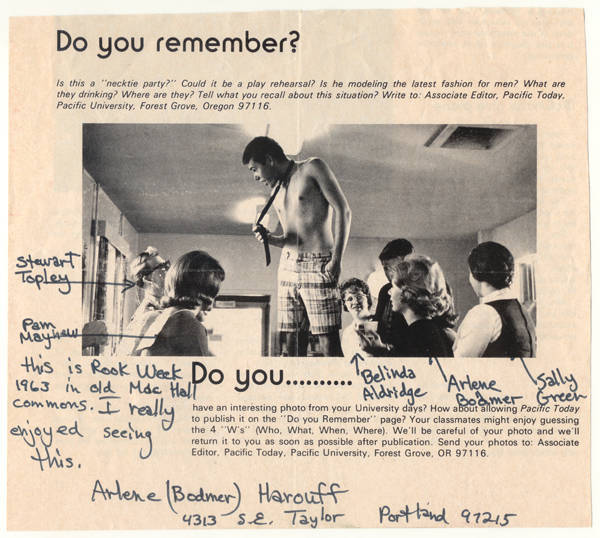 Do you remember?
Is this a "necktie party?" Could it be a play rehearsal? Is he modeling the latest fashion for men? What are
they drinking? Where are they? Tell what you recall about this situation? Write to: Associate Editor, Pacific Today,
Pacific University, Forest Grove, Oregon 97116.
Stewart
Topley
Pam
Mayhew
this is Rook Week
1963 in old Mac Hall
commons. I really
enjoyed seeing
this.
Belinda
Aldridge
Arlene
Bodmer
Sally
Green
Do you..........
have an interesting photo from your University days? How about allowing Pacific Today
to publish it on the "Do you Remember" page? Your classmates might enjoy guessing
the 4 "W's" (Who, What, When, Where). We'll be careful of your photo and we'll
return it to you as soon as possible after publication. Send your photos to: Associate
Editor, Pacific Today, Pacific University, Forest Grove, OR 97116.
Arlene (Bodmer) Harouff
4313 S.E. Taylor Portland 97215